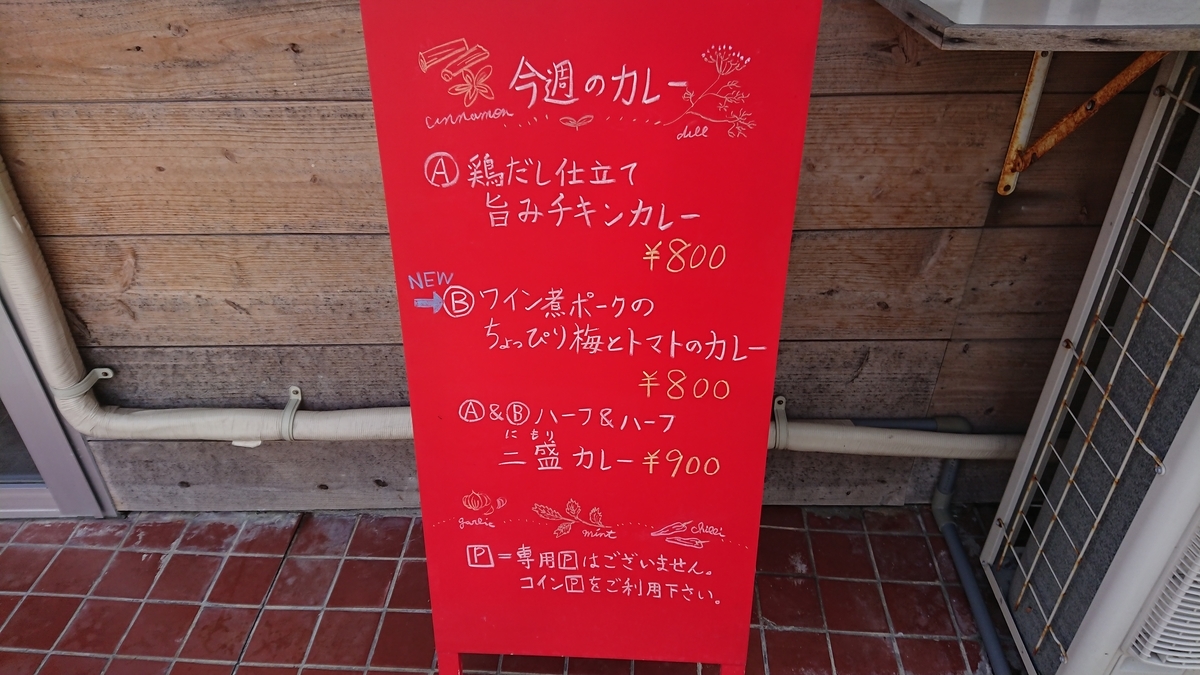 今週のカレー
cinnamon
dill
Ⓐ 鶏だし仕立て
旨みチキンカレー
¥800
NEW
Ⓑ ワイン煮ポークの
ちょっぴり梅とトマトのカレー
¥800
Ⓐ&Ⓑ ハーフ&ハーフ
にもり
二盛カレー ¥900
garlic
mint
chilli
P=専用Pはございません。
コインPをご利用下さい。